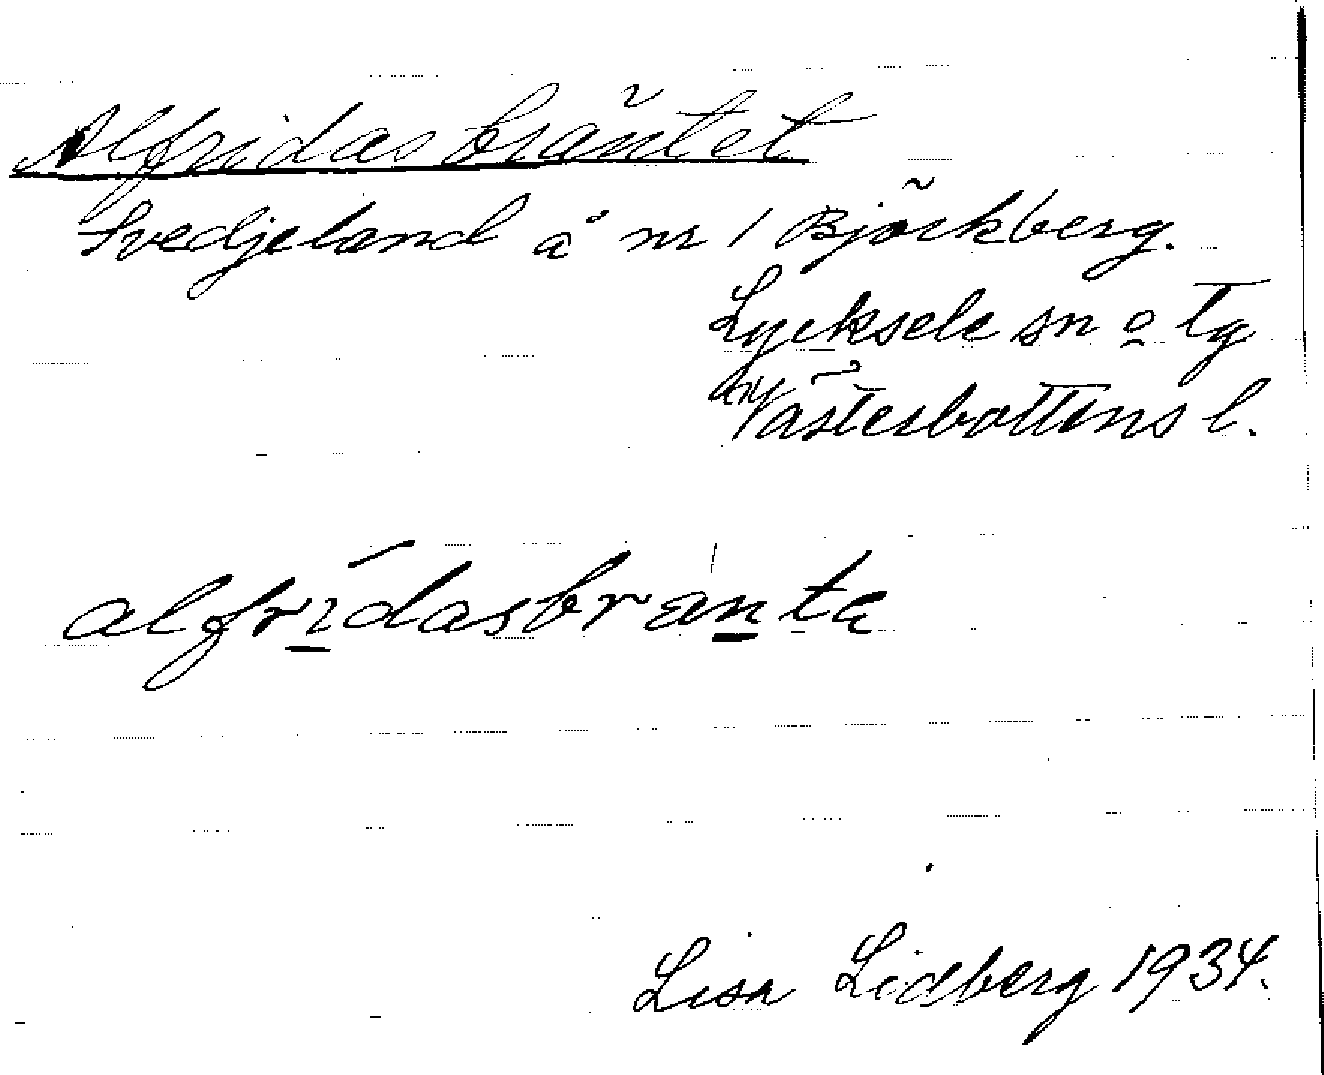 Alfridasbräntet
Svedjeland å nr 1 Björkberg.
Lycksele sn o tg
Västerbottens l.
alfridasbränta
Lisa Lidberg 1934.